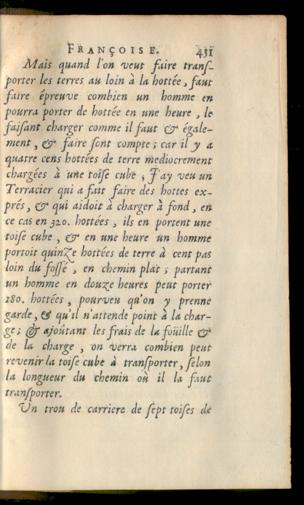 FRANÇOISE. 431
Mais quand l'on veut faire transſ-
porter les terres au loin à la hottée, faut
faire épreuve combien un homme en
pourra porter de hottée en une heure, le
faiſant charger comme il faut & égale-
ment, & faire ſont compte; car il y a
quatre cens hottées de terre mediocrement
chargées à une toiſe cube, J'ay veu un
Terracier qui a fait faire des hottes ex-
prés, & qui aidoit à charger à fond, en
ce cas en 320. hottées, ils en portent une
toiſe cube, & en une heure un homme
portoit quinze hottées de terre à cent pas
loin du foſſé, en chemin plat; partant
un homme en douze heures peut porter
180. hottées, pourveu qu'on y prenne
garde, & qu'il n'attende point à la char-
ge; & ajoûtant les frais de la foüille &
de la charge, on verra combien peut
revenir la toiſe cube à tranſporter, ſelon
la longueur du chemin où il la faut
tranſporter.
Un trou de carriere de ſept toiſes de